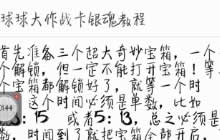 球球大作战卡银魂教程
首先准备三个超大奇妙宝箱，一个
个解锁，但一定不能打开宝箱！等
个宝箱都解锁好了，就等一个时
这个时间必须是单数，比如
:15 或者5:13，总之必须是
0144
时间到了就把宝箱全部开启